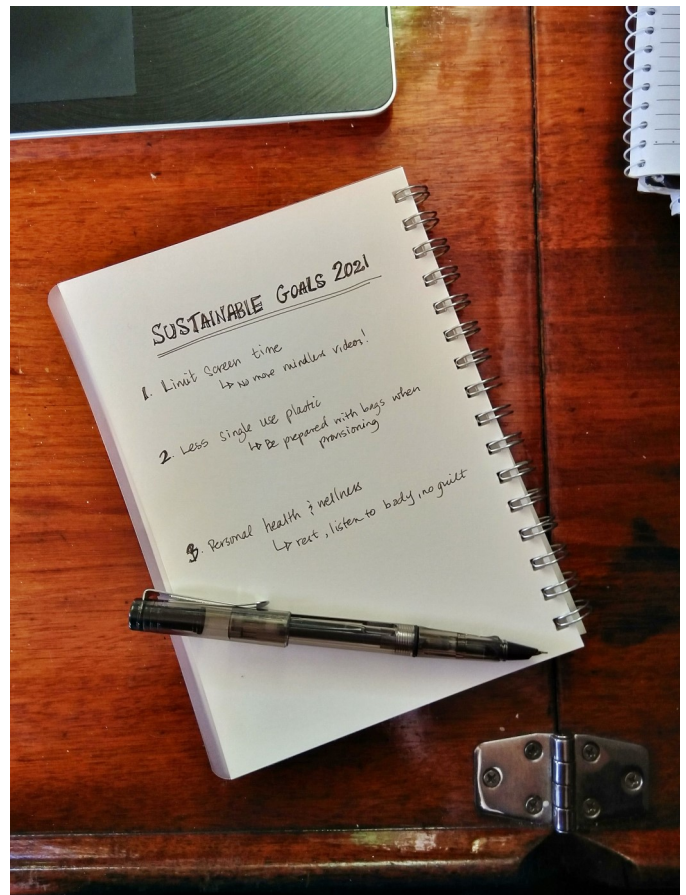 SUSTAINABLE GOALS 2021
1. Limit Screen time
↳ No more mindless videos!
2. Less single use plastic
↳ Be prepared with bags when
provisioning
3. Personal health & wellness
↳ rest, listen to body, no guilt